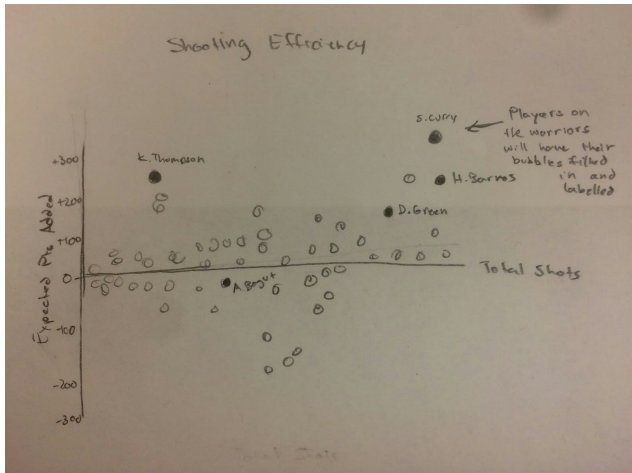 Shooting Efficiency
S. Curry
Players on
the warriors
will have their
bubbles filled
in and
labelled
K. Thompson
H. Barnes
D. Green
A. Bogut
Expected Pts Added
+300
+200
+100
0
-100
-200
-300
Total Shots
Total Shots